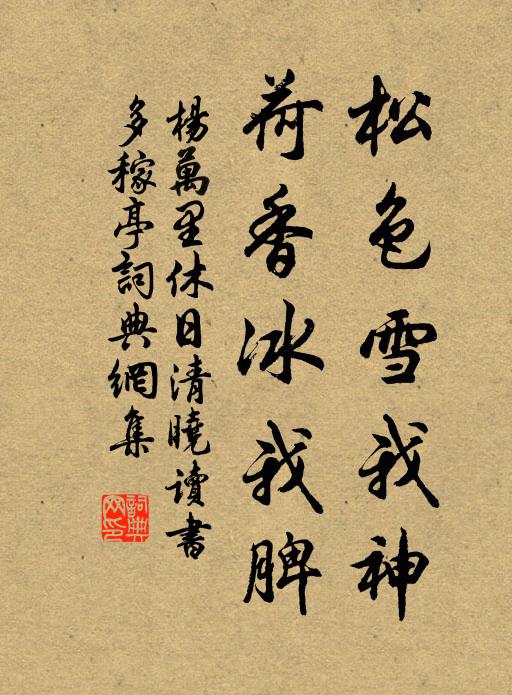 松色雪我神
荷香冰我脾
楊萬里休日清曉讀書
多稼亭詞典網集
詞典
网印